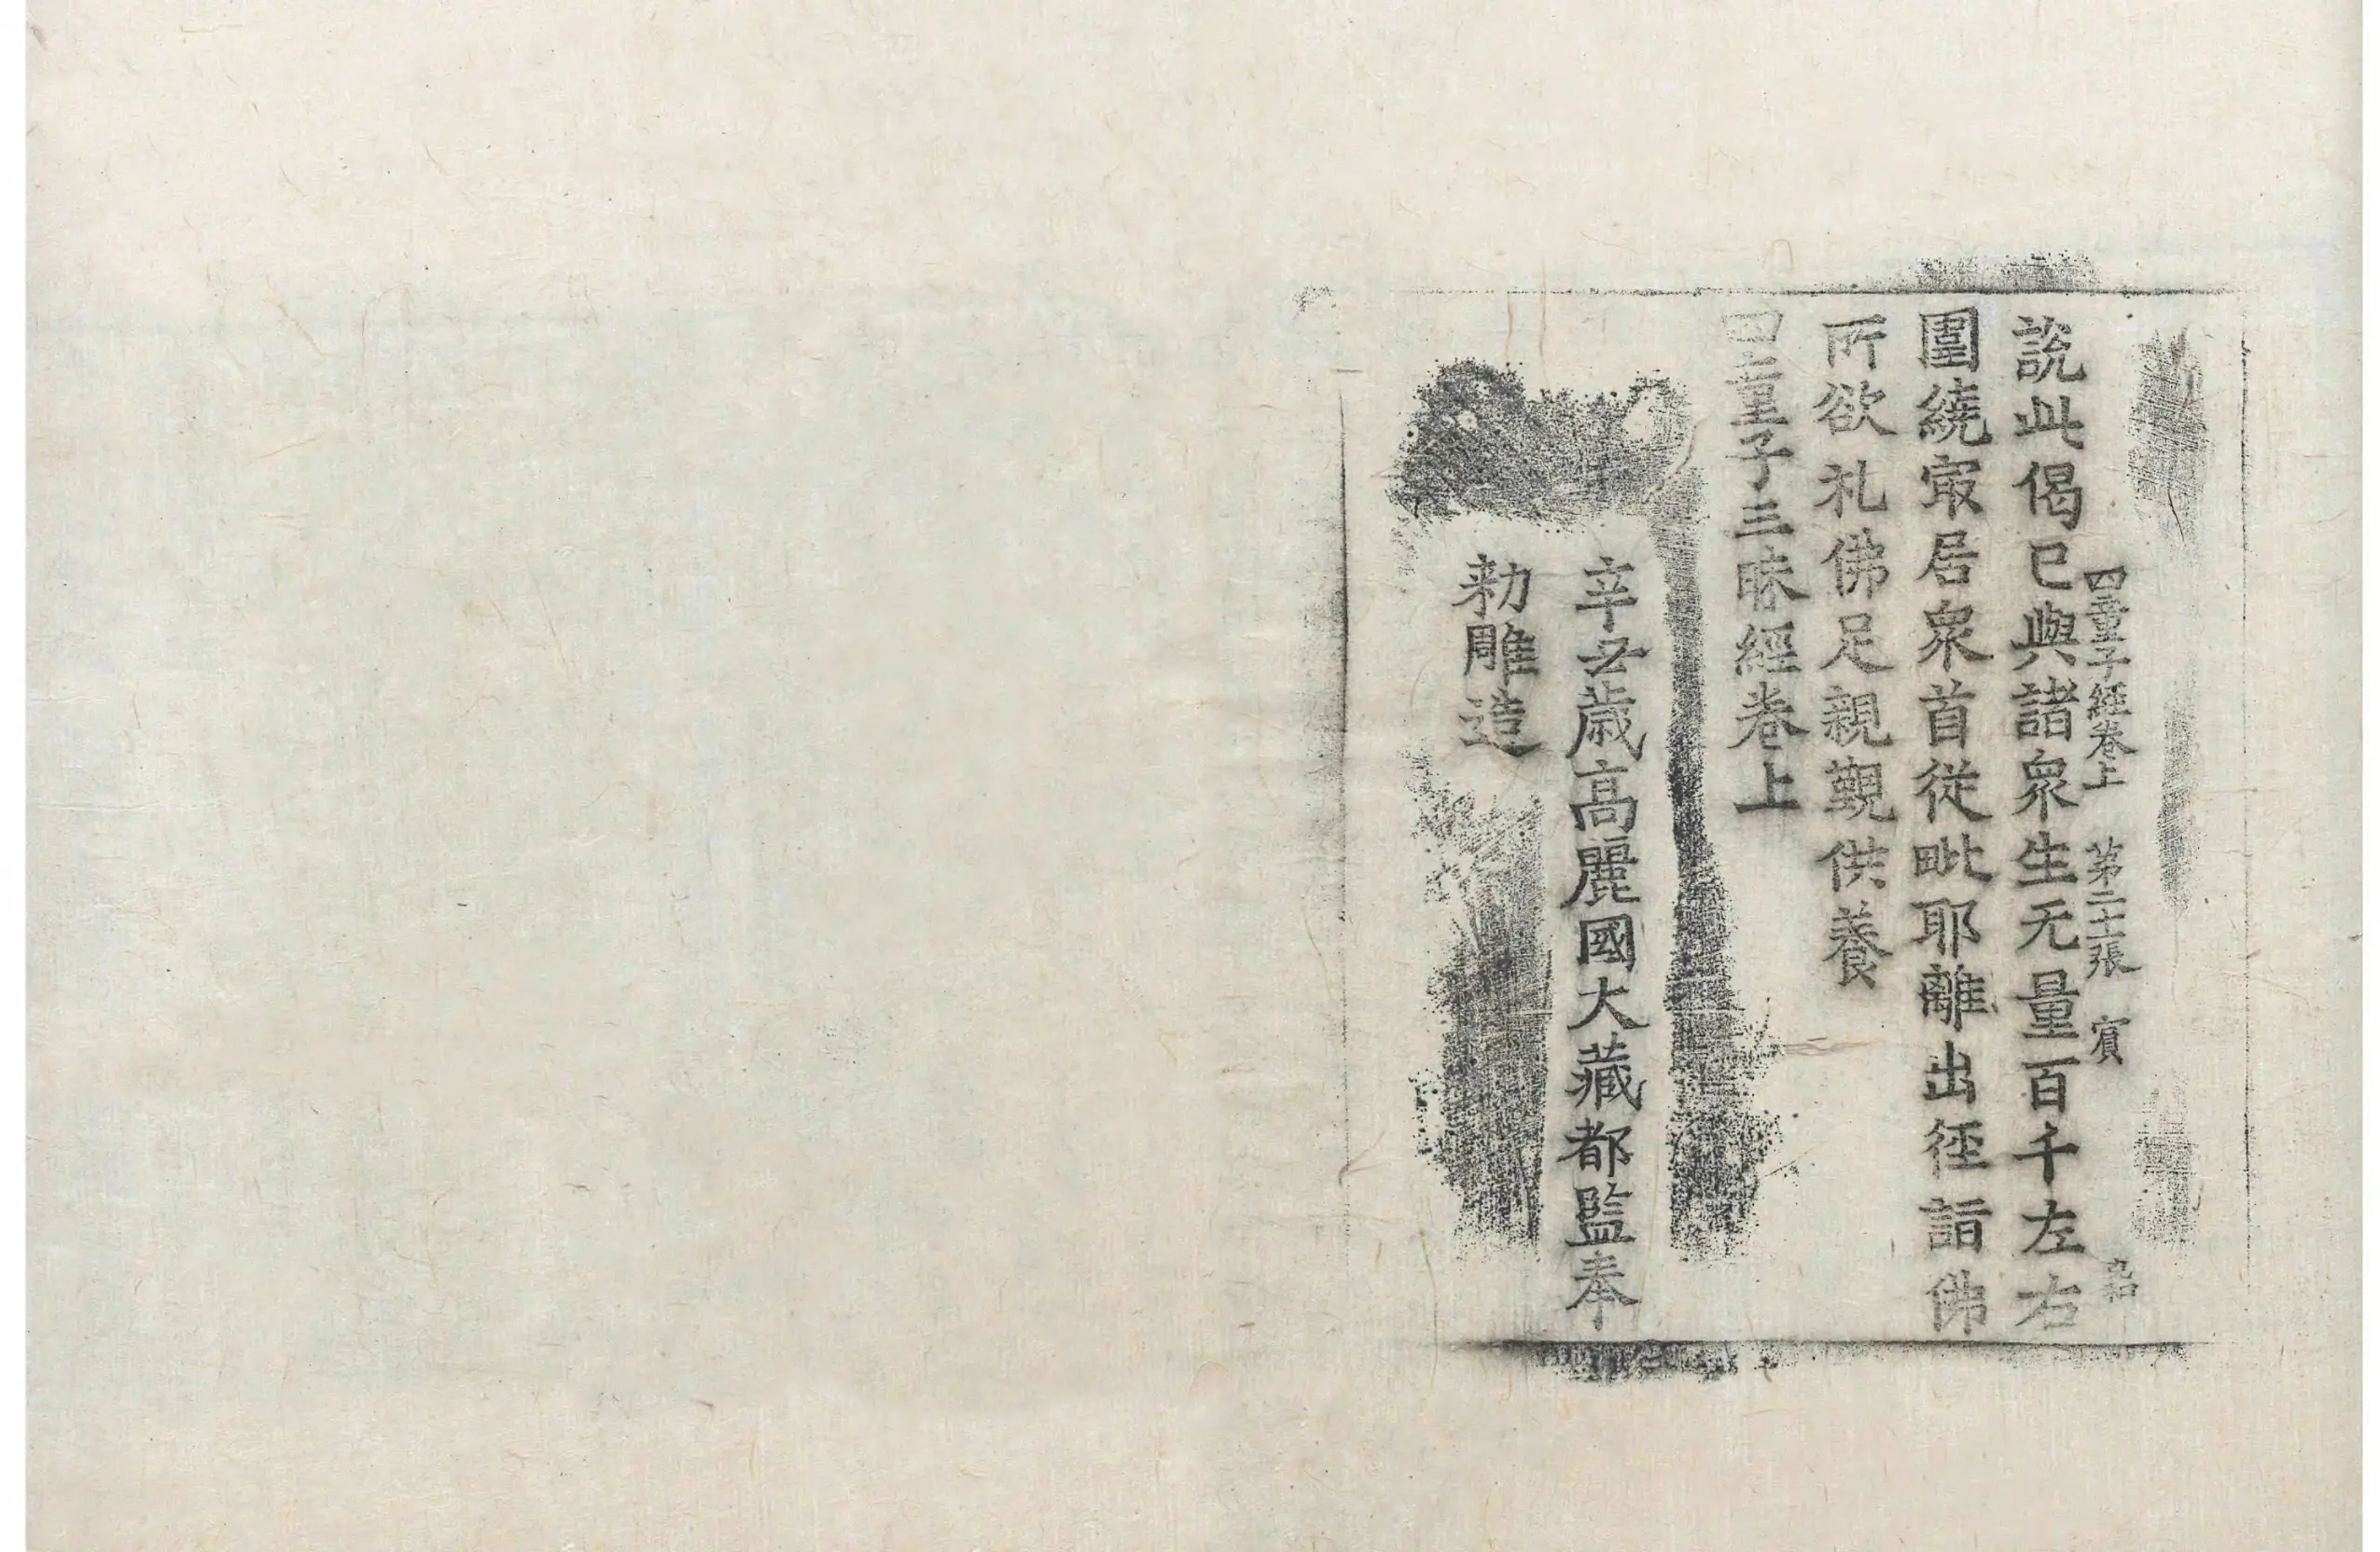 四童子經卷上 第二十張 賓
說此偈已與諸衆生无量百千左右
圍繞㝡居衆首從毗耶離出徑詣佛
所欲礼佛足親覲供養
四童子三昧經卷上
辛丑歲高麗國大藏都監奉
勅雕造